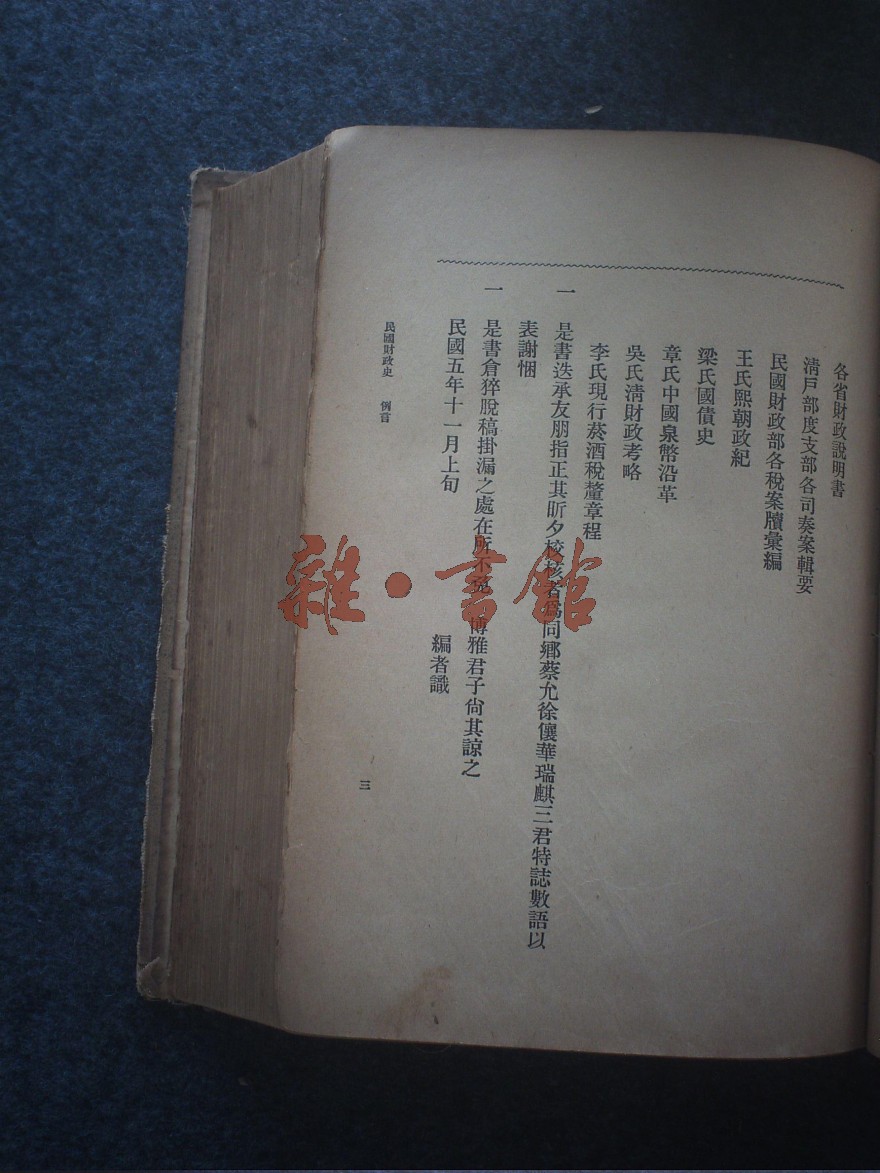 各省財政說明書
清戶部度支部各司奏案輯要
民國財政部各稅案牘彙編
王氏熙朝政紀
梁氏國債史
章氏中國泉幣沿革
吳氏清財政考略
李氏現行菸酒稅釐章程
一 是書迭承友朋指正其昕夕校核者為同鄉蔡允徐儴華瑞麒三君特誌數語以
表謝悃
一 是書倉猝脫稿掛漏之處在所不免 博雅君子尙其諒之
民國五年十一月上旬 編者識
民國財政史 例言
三
雜·書館